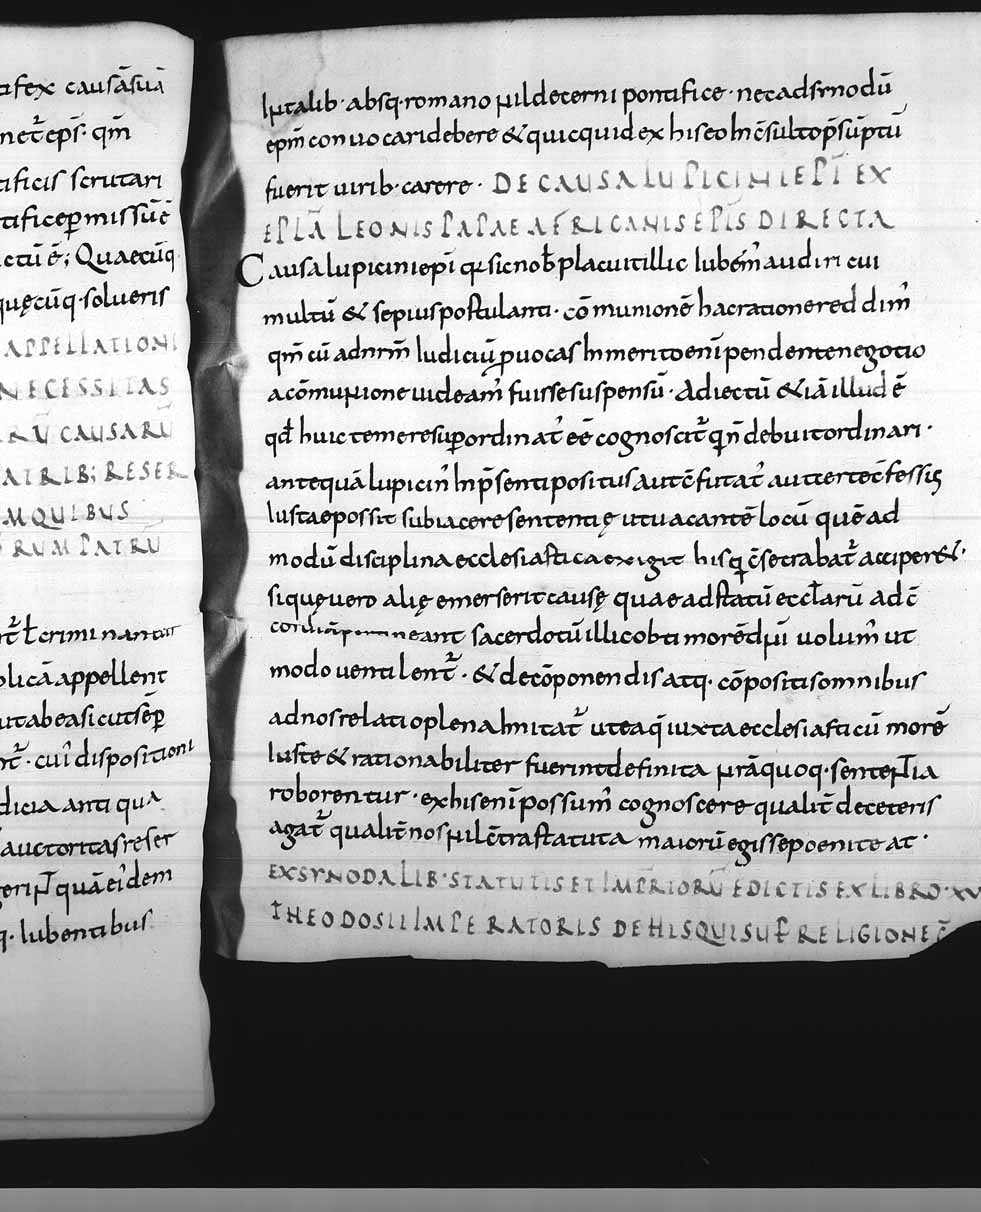 tifex causāsuā
netr̄ eps̄ · qm̄
tificis scrutari
tificep̱missū ē
ctū ē; Quaecūq·
quęcūq· solueris
APPELLATIONI
NECESSITAS
RŪ CAUSARŪ
ATRIB; RESER
MQUIBUS
RUM PATRŪ
crimi nantur
blicā appellent
dicia anti qua
auctoritas reser
quā ei dem
q· iubentibus
talib· absq· romano nil decerni pontifice · nec ad synodū
epm̄ con uo cari debere & quicquid ex his eo Inc̄sultop̄sūptū
fuerit uirib· carere · DE CAUSA LUPICINI EPĪ EX
EPLĀ LEONIS PAPAE AFRICANIS EPĪS DIRECTA
Causa lupicini epī qr̄ sic nob̄ placuit illic Iubem̄ audiri cui
multū & sepius postulanti · cō munionē hac ratione reddim̄
qm̄ cū ad nrm̄ Iudiciū ꝓuocas Inmerito enī pendente negotio
a cōmunione uideam̄ fuisse suspensū · Adiectū & iā illud ē
qd̄ huic temere sup̱ordinat' eē cognoscit' q n̄ debuit ordinari ·
antequā lupicin' In p̄senti positus aut c̄futat' aut certe c̄fessis
Iustae possit subiacere sententię ut uacantē locū quē ad
modū disciplina ecclesiastica exigit his q c̄secrabat' acciper& ·
si quę uero alię emerserit causę quae ad statū eccl̄arū ad c̄
cordiā p̱ti neant sacerdotū illic obti morē dnī uolum̄ ut
modo uentilent̄ · & de cōponendis atq· cōpositis omnibus
ad nos relatio plena Imitat' ut ea q̄ iuxta ecclesiasticū morē
Iuste & rationabiliter fuerint definita nrā quoq· sententia
roborentur · ex his enī possum̄ cognoscere qualit̄ de ceteris
agat' qualit̄ nos nil c̄tra statuta maiorū egisse poenite at ·
EX SYNODALIB· STATUTIS ET IMPERIORŪ EDICTIS EX LIBRO· XV
THEODOSII IMPERATORIS DE HIS QUI SUP̱ RELIGIONE C̄